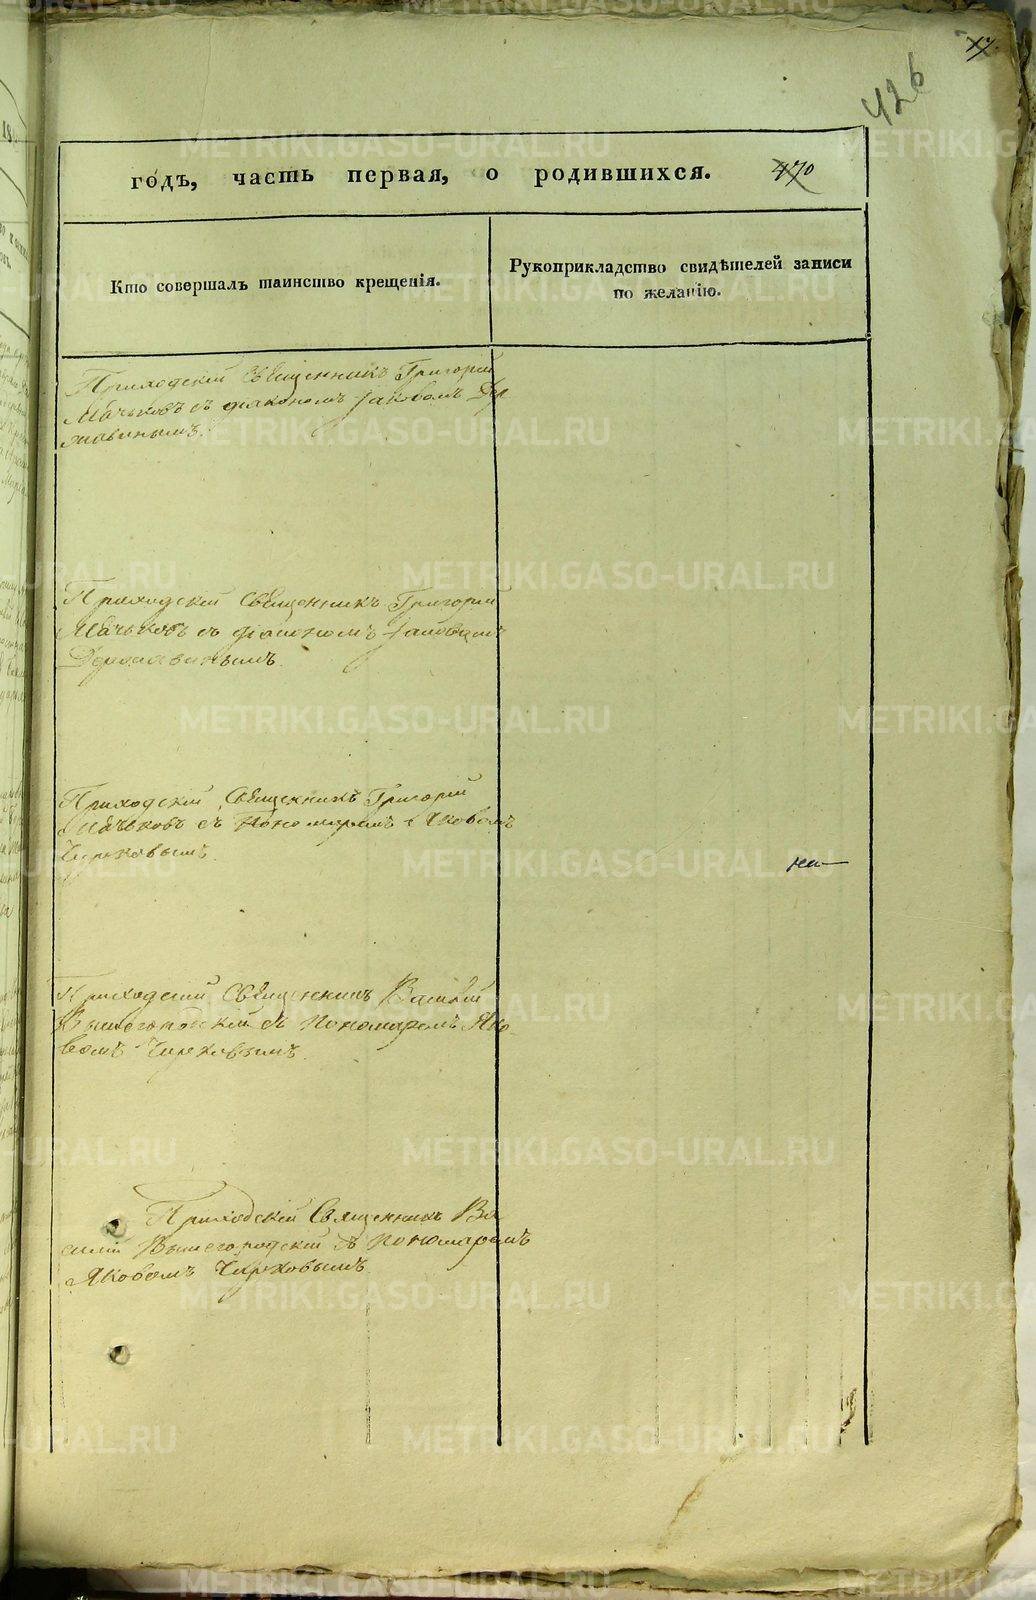 426
годъ, часть первая, о родившихся. 470
Кто совершалъ таинство крещенія.
Рукоприкладство свидѣтелей записи
по желанію.
Приходскій Священникъ Григорій
Мачьковъ съ діакономъ Іаковомъ Дер
жавинымъ.
Приходскій Священникъ Григорій
Мачьковъ съ діакономъ Іаковомъ
Державинымъ.
Приходскій Священникъ Григорій
Мачьковъ съ пономаремъ Яковомъ
Чирковымъ.
Приходскій Священникъ Василій
Вышегородскій съ пономаремъ Яко
вомъ
Приходскій Священникъ Ва
силій Вышегородскій съ пономаремъ
Яковомъ
METRIKI.GASO-URAL.RU